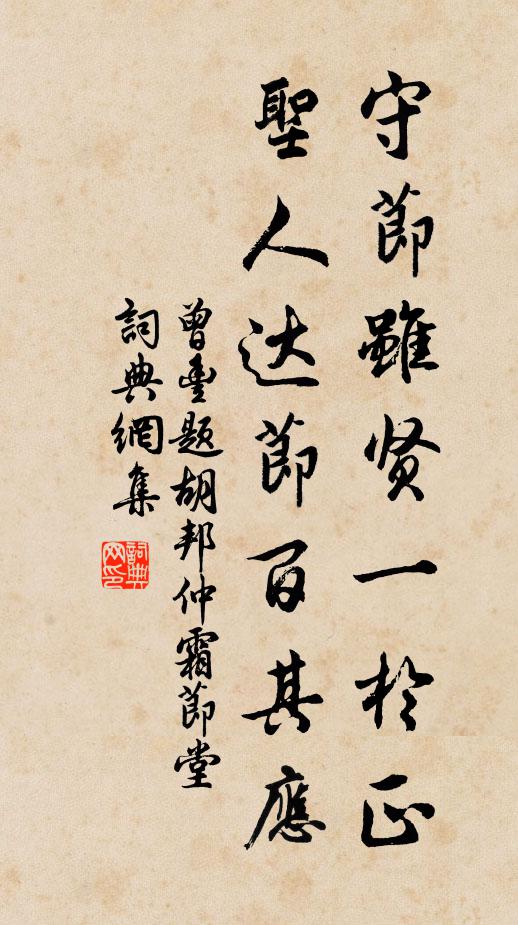 守節雖贤一於正
聖人达節百其應
曾豊题胡邦仲霜節堂
詞典網集
詞典
网印